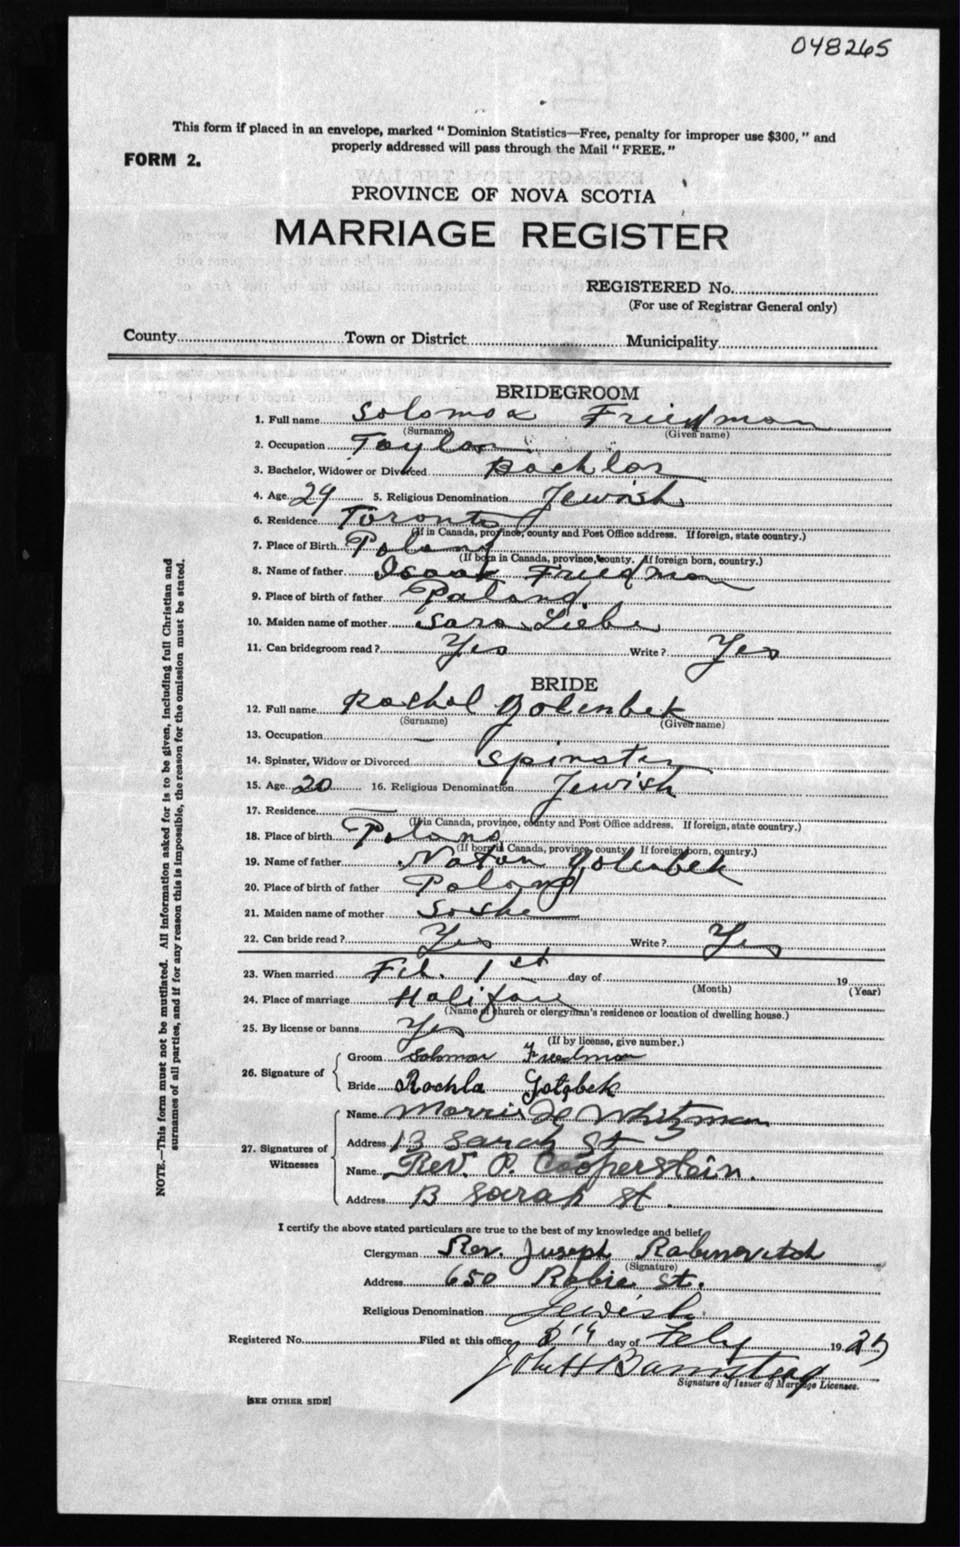 048265
This form if placed in an envelope, marked "Dominion Statistics—Free, penalty for improper use $300," and
properly addressed will pass through the Mail "FREE."
FORM 2.
PROVINCE OF NOVA SCOTIA
MARRIAGE REGISTER
REGISTERED No.
(For use of Registrar General only)
County Town or District Municipality
BRIDEGROOM
1. Full name Solomon Friedman
(Surname) (Given name)
2. Occupation Taylor
3. Bachelor, Widower or Divorced Bachlor
4. Age 29 5. Religious Denomination Jewish
6. Residence Toronto
(If in Canada, province, county and Post Office address. If foreign, state country.)
7. Place of Birth Poland
(If born in Canada, province, county. If foreign born, country.)
8. Name of father Isaak Friedman
9. Place of birth of father Poland
10. Maiden name of mother Sara Liebe
11. Can bridegroom read? Yes Write? Yes
BRIDE
12. Full name Rachel Golenbek
(Surname) (Given name)
13. Occupation —
14. Spinster, Widow or Divorced Spinster
15. Age 20 16. Religious Denomination Jewish
17. Residence —
(If in Canada, province, county and Post Office address. If foreign, state country.)
18. Place of birth Poland
(If born in Canada, province, county. If foreign born, country.)
19. Name of father Natan Golenbek
20. Place of birth of father Poland
21. Maiden name of mother Soshe
22. Can bride read? Yes Write? Yes
23. When married Feb. 1st day of 19
(Month) (Year)
24. Place of marriage Halifax
(Name of church or clergyman's residence or location of dwelling house.)
25. By license or banns Yes
(If by license, give number.)
26. Signature of
Groom Friedman
Bride Rachla
27. Signatures of Witnesses
Name Morris Whitzman
Address 13 Sarah St
Name Rev. P. Cooperstein.
Address 13 Sarah St.
I certify the above stated particulars are true to the best of my knowledge and belief,
Clergyman Rev. Joseph Rabinovitch
(Signature)
Address 650 Robie St.
Religious Denomination Jewish
Registered No. Filed at this office day of Feby 19
John H Barnstead
Signature of Issuer of Marriage Licenses.
[SEE OTHER SIDE]
NOTE.—This form must not be mutilated. All information asked for is to be given, including full Christian and
surnames of all parties, and if for any reason this is impossible, the reason for the omission must be stated.